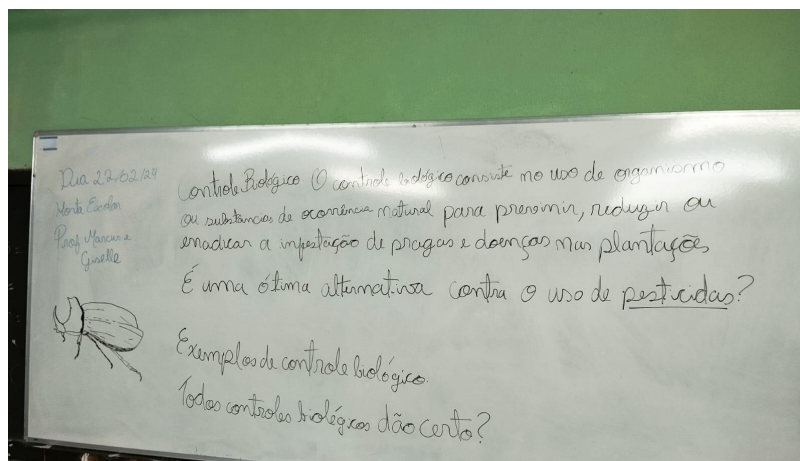 Dia 22/02/24
Horta Escolar
Prof Marcus e
Giselle
Controle Biológico O controle biológico consiste no uso de organismo
ou substâncias de ocorrência natural para prevenir, reduzir ou
erradicar a infestação de pragas e doenças nas plantações
É uma ótima alternativa contra o uso de pesticidas?
Exemplos de controle biológico.
Todos controles biológicos dão certo?